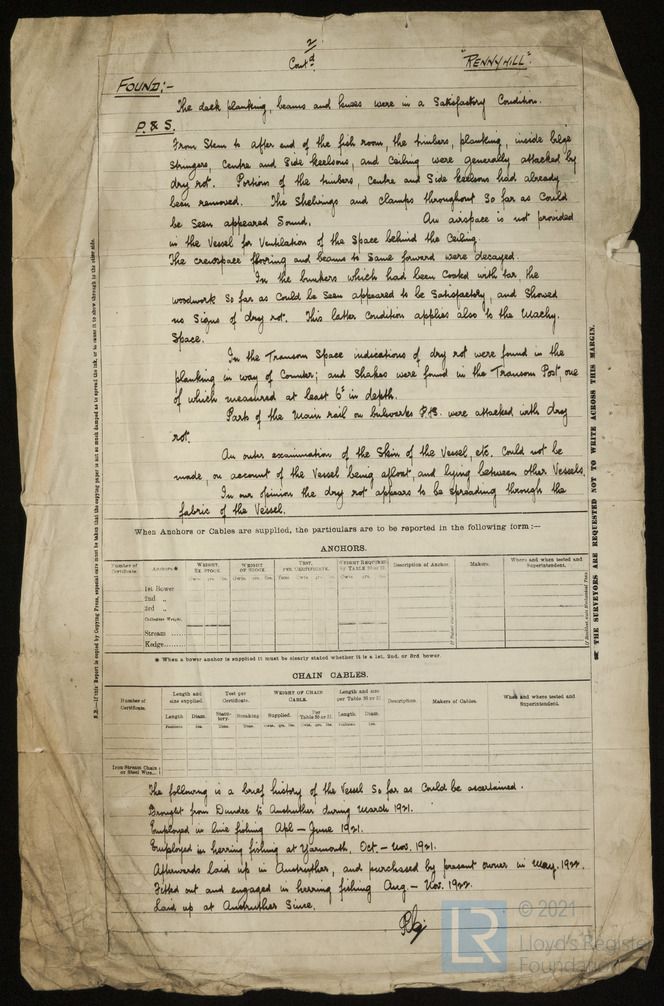 2
Contd.
"PENNYHILL".
FOUND:-
The deck planking, beams and knees were in a Satisfactory Condition.
P. & S.
From Stem to after end of the fish room, the timbers, planking, inside bilge
stringers, Centre and Side keelsons, and Ceiling were generally attacked by
dry rot. Portions of the timbers, Centre and Side keelsons had already
been removed. The Shelvings and clamps throughout so far as Could
be seen appeared Sound. An airspace is not provided
in the Vessel for Ventilation of the Space behind the Ceiling.
The crewspace flooring and beams to same forward were decayed.
In the bunkers which had been Coated with tar, the
woodwork so far as could be seen appeared to be Satisfactory, and showed
no Signs of dry rot. This latter condition applies also to the Machy.
Space.
In the Transom Space indications of dry rot were found in the
planking in way of Counter; and Shakes were found in the Transom Post, one
of which measured at least 6" in depth.
Parts of the Main rail on bulwarks P.&S. were attacked with dry
rot.
An outer examination of the Skin of the Vessel, etc. Could not be
made, on account of the Vessel being afloat, and lying between other Vessels.
In our opinion the dry rot appears to be spreading through the
fabric of the Vessel.
N.B.—If this Report is copied by Copying Press, especial care must be taken that the copying paper is not so much damped as to spread the ink, or to cause it to show through to the other side.
☛ THE SURVEYORS ARE REQUESTED NOT TO WRITE ACROSS THIS MARGIN.
When Anchors or Cables are supplied, the particulars are to be reported in the following form:—
ANCHORS.
Number of Certificate. Anchors* WEIGHT, EX STOCK. WEIGHT OF STOCK. TEST, PER CERTIFICATE. WEIGHT REQUIRED by TABLE 30 or 31. Description of Anchor. Makers. Where and when tested and Superintendent.
Cwts. qrs. lbs. Cwts. qrs. lbs. Tons Cwts. qrs. lbs. Cwts. qrs. lbs.
1st Bower
2nd „
3rd „
Collective Weight.
Stream ......
Kedge......
* When a bower anchor is supplied it must be clearly stated whether it is a 1st, 2nd, or 3rd bower.
CHAIN CABLES.
Number of Certificate. Length and size supplied. Test per Certificate. WEIGHT OF CHAIN CABLE. Length and size per Table 30 or 31. Description. Makers of Cables. When and where tested and Superintendent.
Length Diam. Statutory. Breaking Supplied. Per Table 30 or 31. Length. Diam.
Fathoms Ins. Tons. Tons. Cwts. qrs. lbs. Cwts. qrs. lbs. Fathoms Ins.
Iron Stream Chain or Steel Wire...
The following is a brief history of the Vessel so far as Could be ascertained.
Brought from Dundee to Anstruther during March 1921.
Employed in line fishing Apl — June 1921.
Employed in herring fishing at Yarmouth, Oct. — Nov. 1921.
Afterwards laid up in Anstruther, and purchased by present owner in May. 1922.
Fitted out and engaged in herring fishing Aug — Nov. 1922.
Laid up at Anstruther Since.
LR
© 2021
Lloyd's Register
Foundation